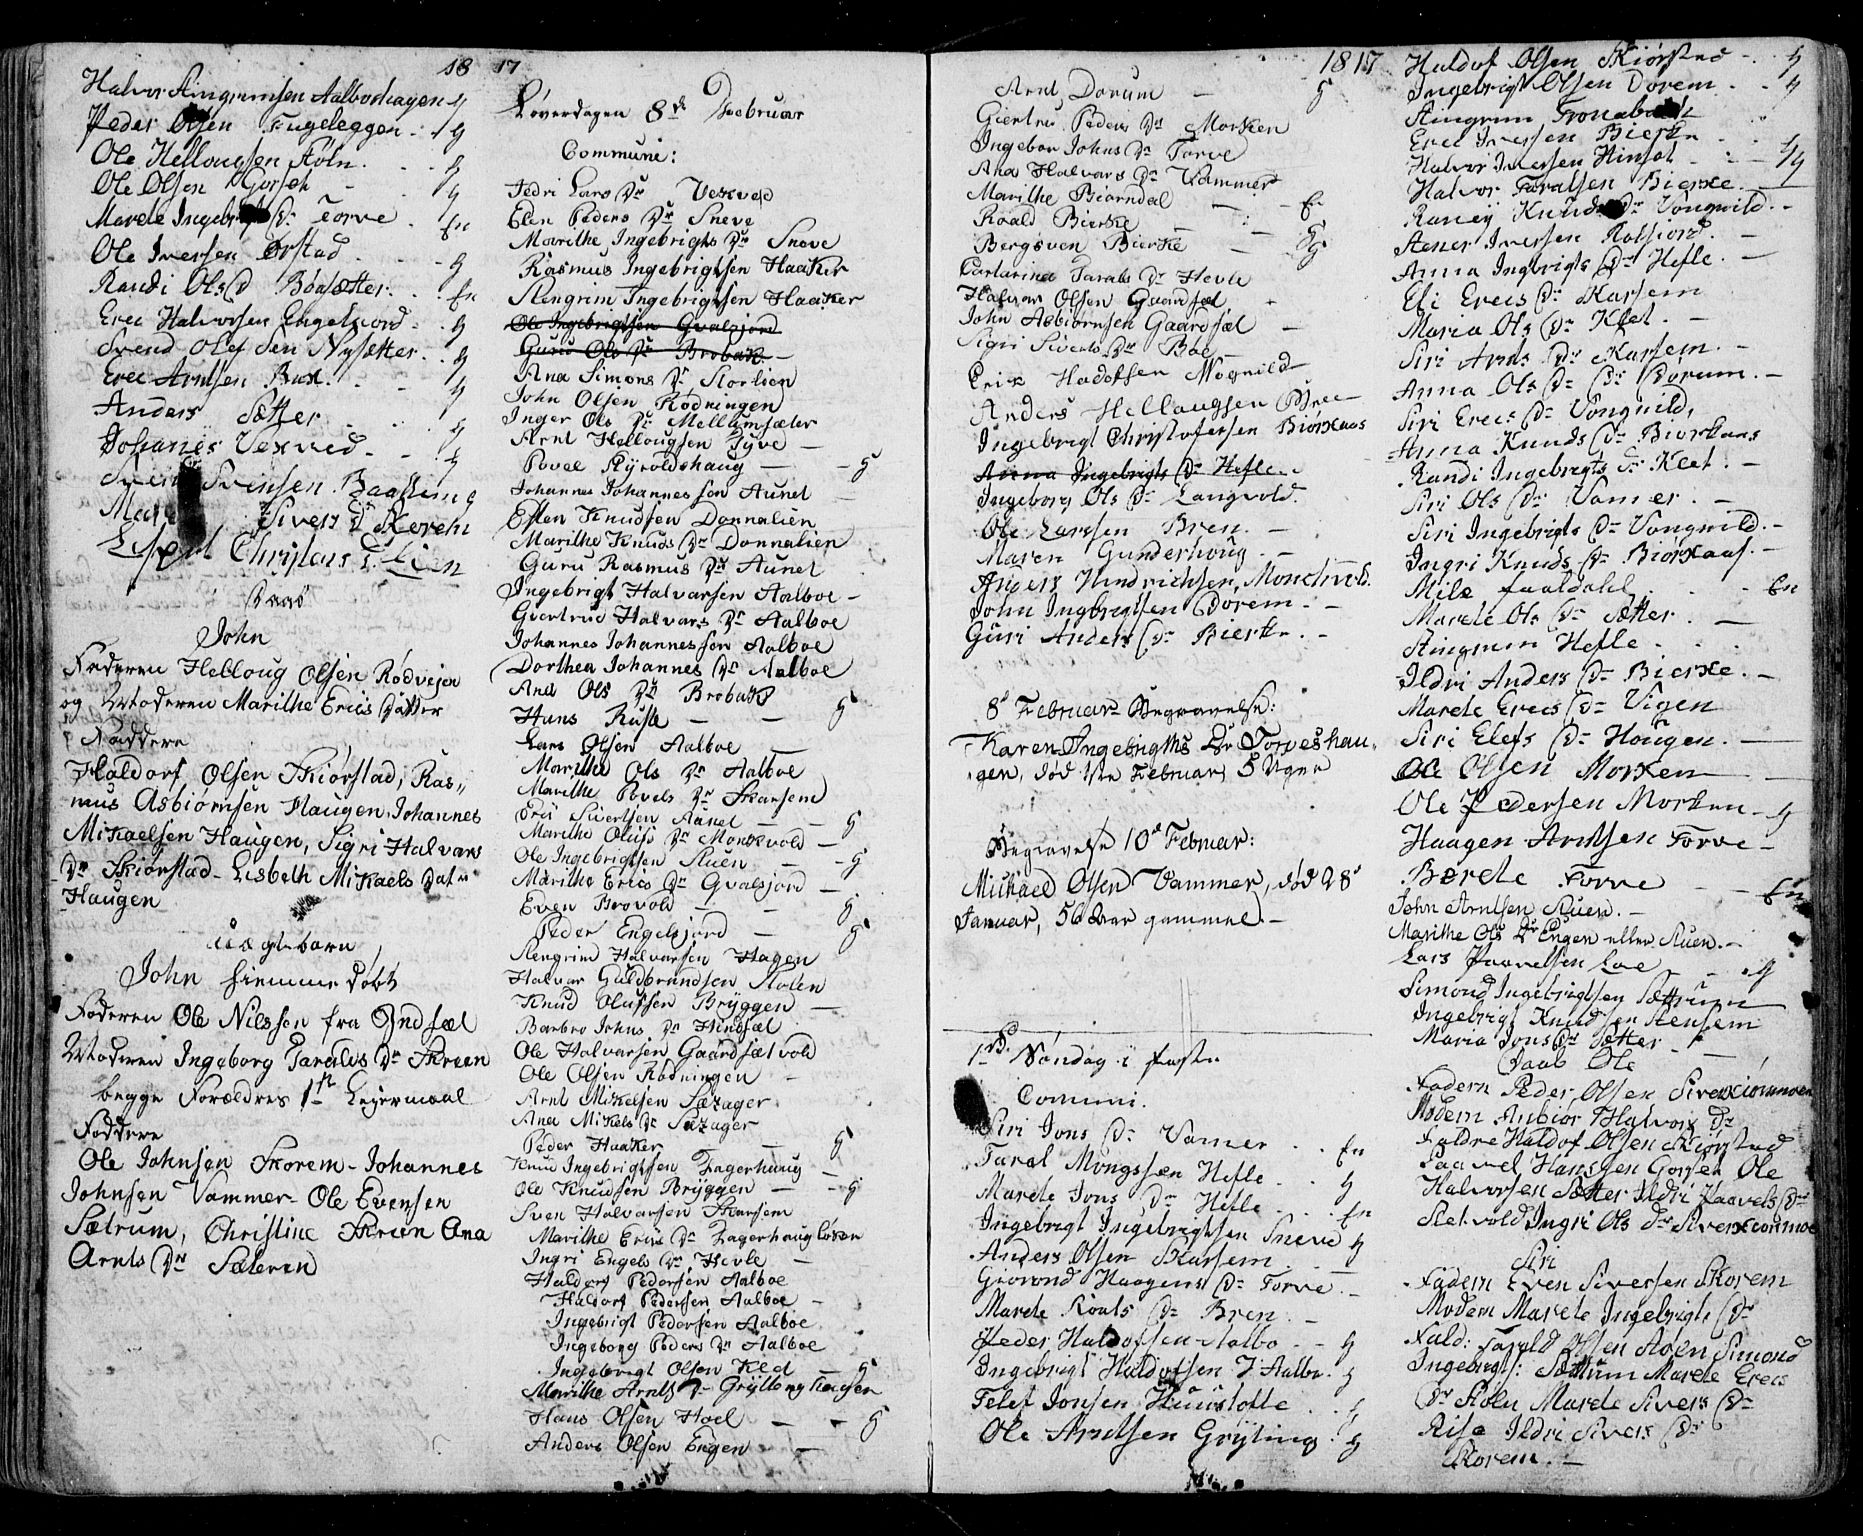 18 17
Halvor Aingrimsen Aalboshagen g
Peder Olsen Fugeleggen g
Ole Hellougsen Støln g
Ole Olsen Gorset g
Marete Ingebr Dr Torve En
Ole Iversen Ørstad g
Randi Ols D Bøesætter En
Erec Halvorsen Engelsiord g
Svend Olefsen Nysætter g
Erec Arntsen Bux g
Anders Sætter g
Johanes Vexved g
Svensen g
Mar Sivers D
Lien
Daab
John
Faderen Helloug Olsen Rødvejen
og Moderen Marithe Erics Datter
Faddere
Haldorf Olsen Skiørstad, Ras„
mus Asbiørnsen Haugen, Johannes
Mikaelsen Haugen, Sigri Halvars
Dr Skiørstad Lisbeth Mikaels Dat„
Haugen
uægte barn
John hiemmedøbt
Faderen Ole Nilssen fra Indsæt
Moderen Ingeborg Taralds Dr Skreen
begge Forældres 1ste Leiermaal
Faddere
Ole Johnsen Skorem Johannes
Johnsen Vammer Ole Evensen
Sætrum, Christine Skreen Ana
Arnts Dr Sæteren
Løverdagen 8de Februar
Communi:
Sidri Lars Dr Vexved
Elen Peders Dr Sneve
Marithe Ingebrigts Dr Sneve
Rasmus Ingebrigtsen Haaker
Stengrim Ingebrigtsen Haaker
Ole Ingebrigtsen Gvalsjord
Guru Ols Dr Brobak
Ana Simons Dr Storlien
John Olsen Rødningen
Inger Ols Dr Mellumsæter
Arnt Hellougsen Tyve
Povel Skyroldshaug g
Johannes Johannessen Aunet
Esten Knudsen Donnalien
Marithe Knuds Dr Donnalien
Guru Rasmus Dr Aunet
Ingebrigt Halvarsen Aalboe
Giertrud Halvars Dr Aalboe
Johannes Johannessen Aalboe
Dorthea Johannes Dr Aalboe
Ana Ols Dr Brobakk
Hans Rusk g
Lars Olsen Aalboe
Marithe Ols Dr Aalboe
Marithe Povels Dr Skarsem
Eric Sivertsen Aunet g
Marithe Olufs Dr Monsvold
Ole Ingebrigtsen Stuen g
Marithe Erics Dr Gvalsjord
Even Brovold g
Peder Engelsjord g
Stengrim Halvarsen Hagen
Halvar Guldbrandsen Stolen
Knud Olufsen Bryggen
Barbro Johns Dr Hindsæt
Ole Halvarsen Gaardsætvold
Ole Olsen Rødningen
Arnt Mikelsen Sæzager
Ana Mikels Dr Sæzager
Peder Haaker g
Knud Ingebrigtsen Fagerhaug
Ole Knudsen Bryggen g
Sven Halvarsen Skarsem
Marithe Erics Dr Fagerhaugløkken
Ingri Engels Dr Hevle
Haldorf Pedersen Aalboe
Haldorf Pedersen Aalboe
Ingebrigt Pedersen Aalboe
Ingeborg Peders Dr Aalboe
Ingebrigt Olsen Klet g
Marithe Arnts Dr
Hans Olsen Hoel g
Anders Olsen Engen
1817
Arnt Dorum g
Giertru Peders Dr Morken
Ingebor Johns Dr Torve
Ana Halvars Dr Vammer
Marithe Biørndal En
Roald Bierke
Bergsven Bierke g
Cartarina Taralds Dr Hevle
Halvor Olsen Gaardsæt
John Asbiørnsen Gaardsæt
Sigri Siverts Dr Boe
Erik Hadofsen Mognild
Anders Hellaugsen Bree
Ingebrigt Christofersen Biørkaas
Anna Ingebrigts Dr Hefle
Ingeborg Ols Dr Langvold
Ole Larssen Bren
Maren Gunderhoug
Anders Hindrichsen
John Ingebrigtsen Dörem
Guri Anders Dr Bierke
8de Februar Begravelse:
Karen Ingebrigths Dr Torveshau„
gen, død 1ste Februar, 5 Uger
Begravelse 10de Februar:
Michael Olsen Vammer, død 28de
Januar, 56 Aar gammel
1ste Søndag i faste
Comuni.
Siri Jons Dr Vamer En
Taral Mongssen Hefle g
Marete Jons Dr Hefle En
Ingebrigt Ingebrigtsen Sneve g
Anders Olsen Skarsem
Groeond Haagens Dr Torve
Marete Roals Dr Bren
Peder Haldofsen Aalbo g
Ingebrigt Haldofsen I Aalbo g
Telef Jonsen g
Ole Arntsen Gryting g
Haldof Olsen Skiørsted g
Ingebrigt Olsen Dorem g
Aingrim
Erec Iversen Bierke
Halvor Iversen Hinset g
Halvor Taralsen Bierke
Raney Knuds Dr Vongnild
Asner Iversen
Anna Ingbrigts Dr Hefle
Eli Erecs Dr Karsem
Maria Ols Dr Klet
Siri Arnts Dr Karsem
Anna Ols Dr Dorum
Siri Erecs Dr Vongnild
Anna Knuds Dr Biørkaas
Randi Ingebregts Dr Klet
Siri Ols Dr Vamer
Siri Ingebrigts Dr Vongnild
Ingri Knuds Dr Biørkaas
Mile En
Marete Ols Dr Sætter
Aingrim Hefle
Ildri Anders Dr Bierke
Marete Erecs Dr Vigen
Siri Elefs Dr Hougen
Ole Olsen Morken
Ole Pedersen Morken g
Haagen Arntsen Torve
Berete Torve En
John Arntsen Stuen
Marithe Ols Dr Engen eller Stuen
Lars Paavelsen Loe g
Simond Ingebrigtsen Sættrum
Ingebrigt Knudsen Stensem
Maria Jons Dr Sætter
Daab Ole
Fadern Peder Olsen
Modern Anbior Halvors Dr
Faddre Haldof Olsen Skiørstad
Paavel Hanssen Gorset Ole
Halvorsen Sætter Ildri Paavels Dr
Sletvold Ingri Ols Dr
Siri
Fadern Even Siversen Skorem
Modern Marete Ingebrigts Dr
Fadd: Olsen Simond
Ingebrigts: Sættrum Marete Erecs
Dr Støln Marete Sivers Dr
Rise Ildri Sivers Dr
Skorem